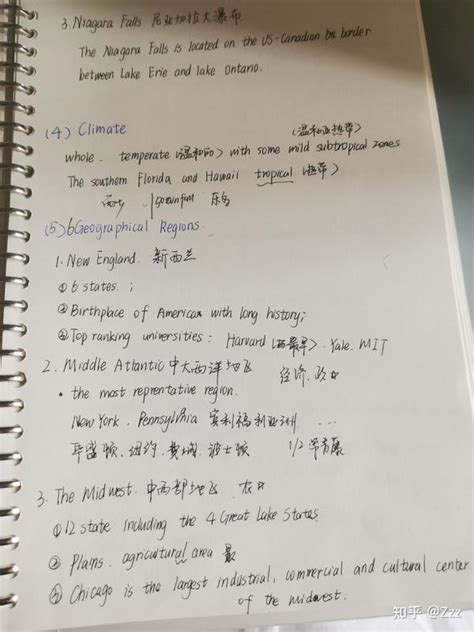 3. Niagara Falls 尼亚加拉大瀑布
The Niagara Falls is located on the US-Canadian be border
between Lake Erie and lake Ontario.
(4) Climate (温和亚热带)
whole. temperate (温和的) with some mild subtropical zones
The southern Florida and Hawaii tropical (热带)
西 50 rainfall 东
(5) 6 Geographical Regions.
1. New England. 新西兰
① 6 states. ;
② Birthplace of America with long history;
② Top ranking universities: Harvard (最早). Yale. MIT
2. Middle Atlantic 中大西洋地区 经济.政
• the most reprentative region.
New York. Pennsylvania 宾利福利亚洲 ...
华盛顿.纽约.费城.波士顿 1/2 常青藤
3. The Midwest. 中西部地区 农
① 12 state including the 4 Great Lake States.
② Plains. agricultural area 最
③ Chicago is the largest industrial, commercial and cultural center
of the midwest.
知乎 @Zzz